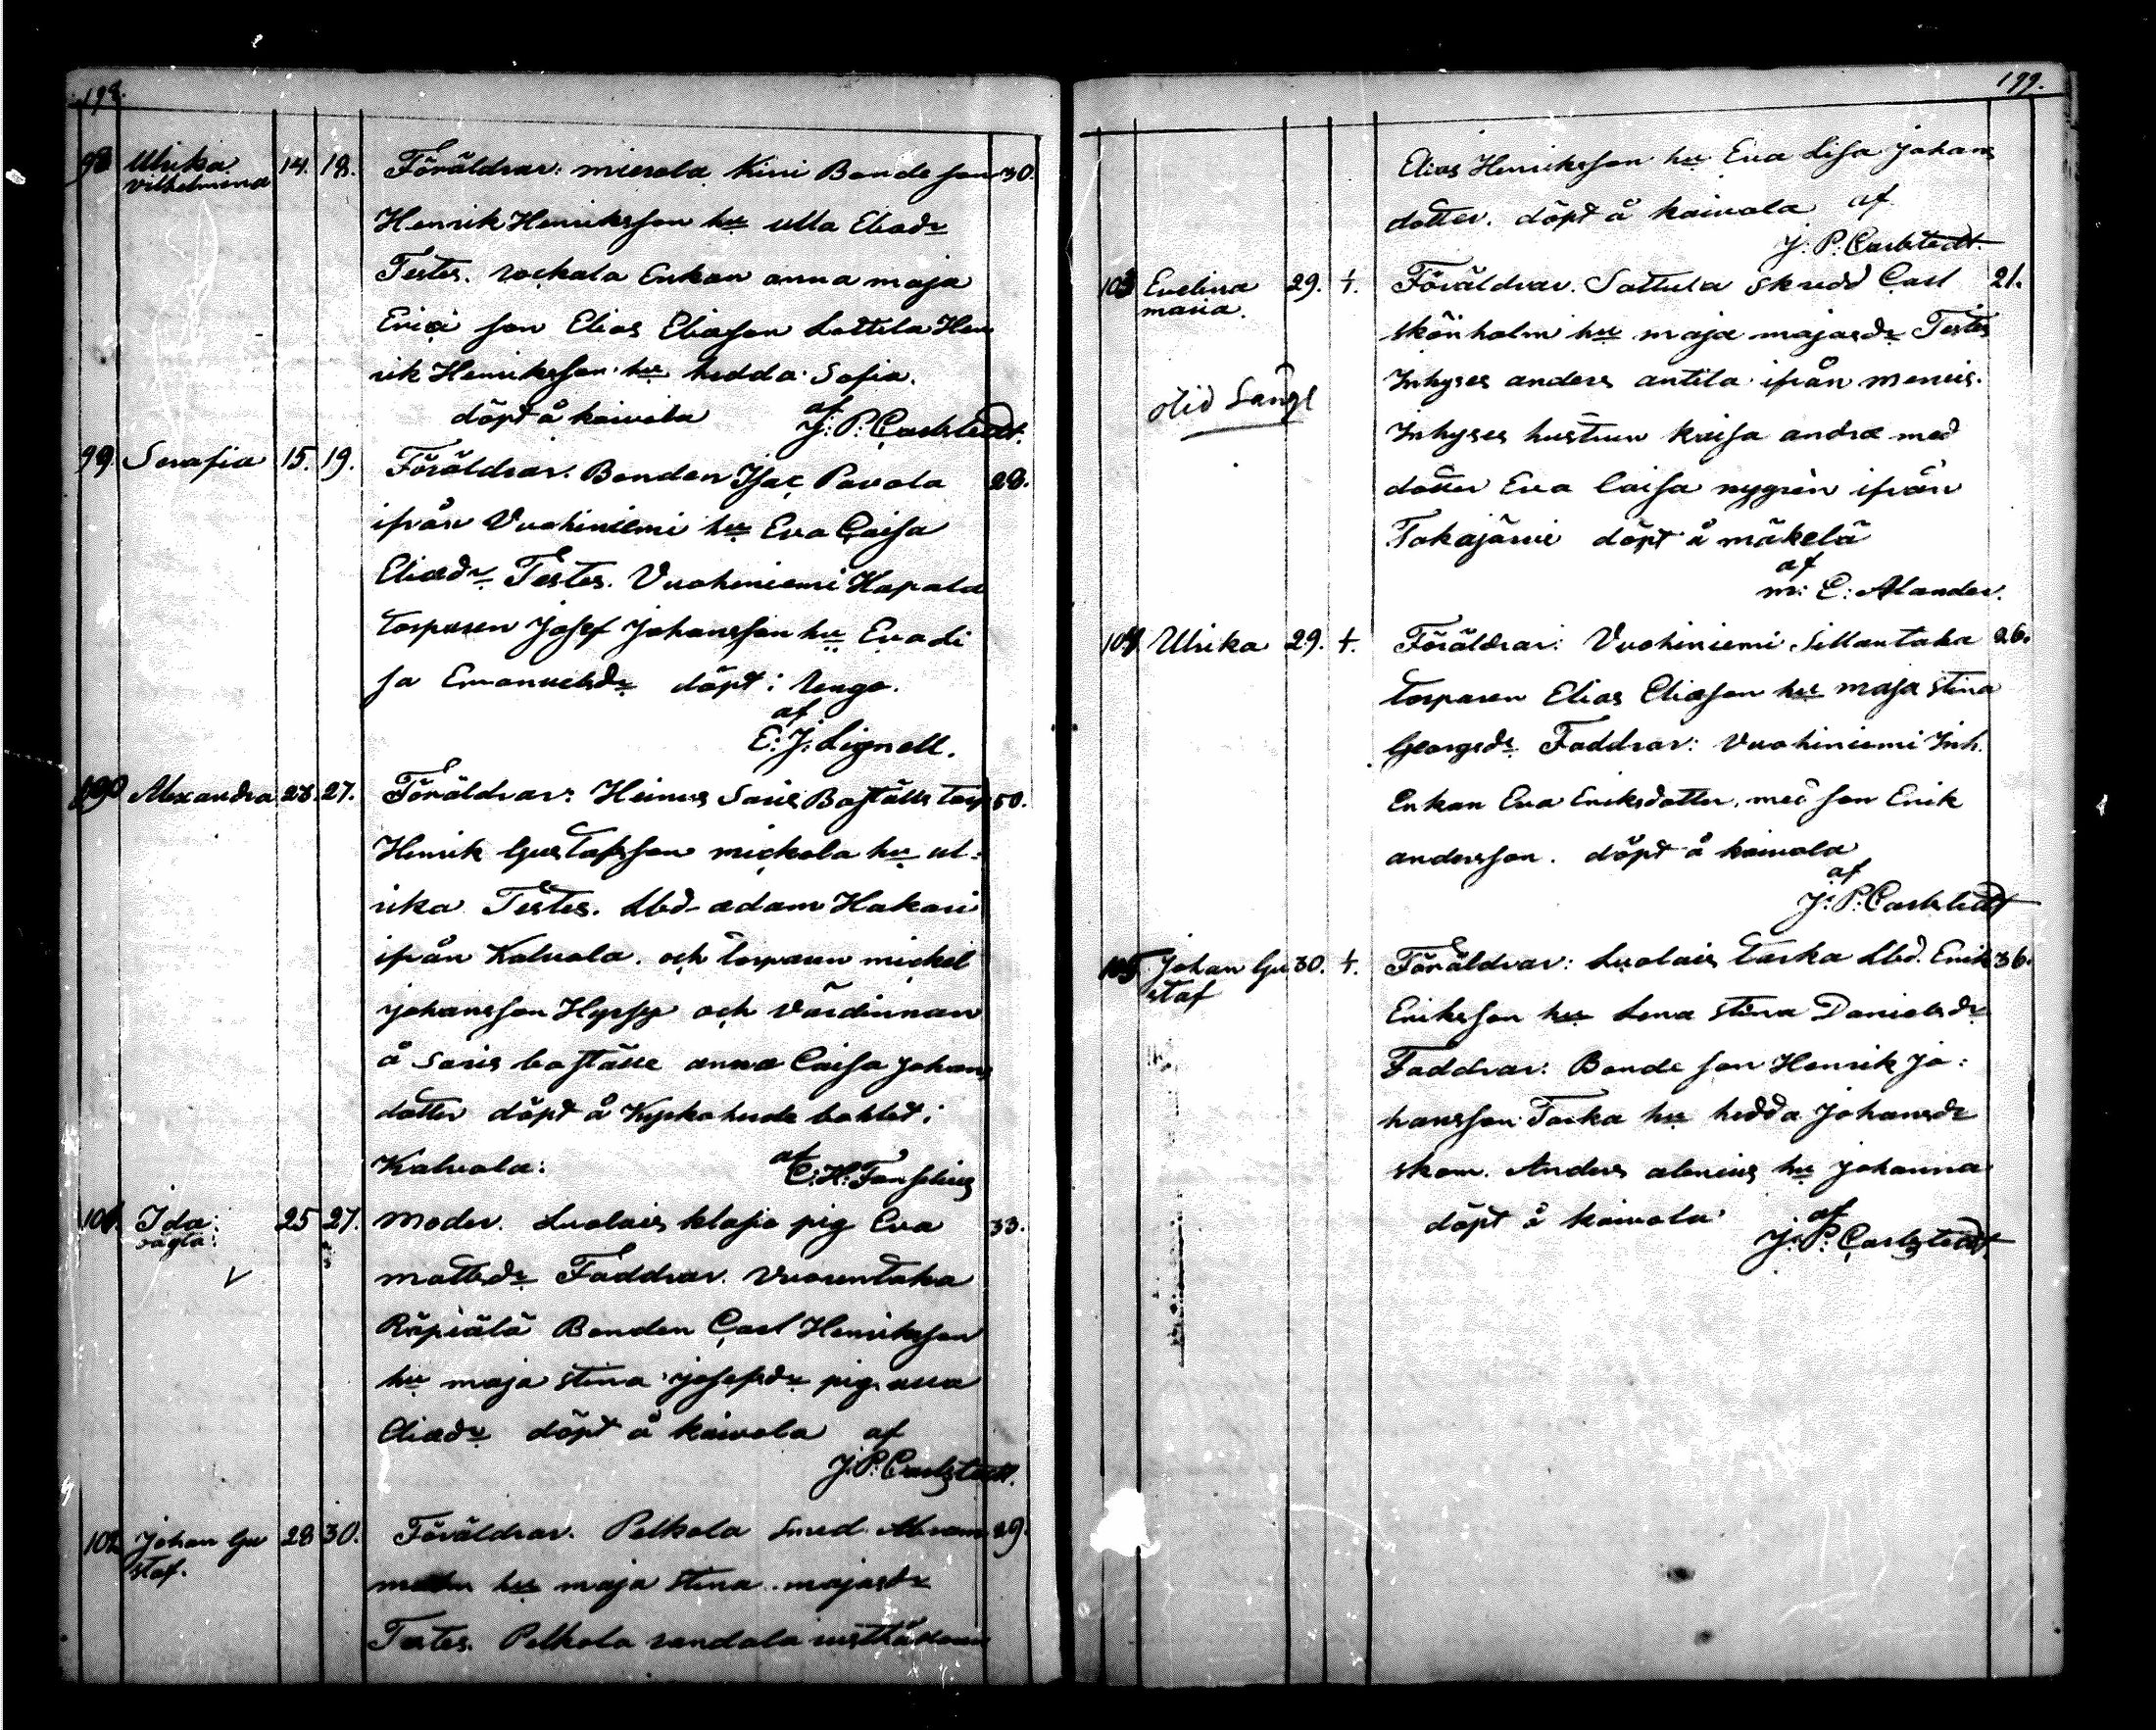 198.
98 Ulrika 14. 18. Föräldrar: mierola Kini Bonde son 30.
vilhelmina
Henrik Henriksson hu ulla Eliadr
Testes. Enkan anna maja
son Elias Eliasson Lottila Hen
rik Henriksson hu hedda Sofia.
döpt å kaivola af
J: P: Carlstedt.
99. Serafia 15. 19. Föräldrar. Bonden Isac Pavola 28.
ifrån Vuohiniemi hu Eva Caisa
Eliædr Testes. Vuohiniemi Kapala
torparen Josef Johansson hu Eva Li
sa Emanuelsdr döpt i Rengo.
af
E: J: Lignell.
100 Alexandra 23. 27. Föräldrar: Heinus Saris Boställs torp 50.
Henrik Gustafsson mickola hu ul:
rika Testes. Lbd adam Hakari
ifrån Kalvola. och torparen mickel
johansson Hyrsy och värdinnan
å Saris boställe anna Caisa johans
dotter döpt å boklet i
Kalvola: af
C: H: Fonselius
101. Ida: 25 27. Moder. Luolais klasio pig Eva 33.
oägta:
mattsdr Faddrar. Vuorentaka
Räpiälä Bonden Carl Henriksson
hu maja stina josefsdr pig.
Eliædr döpt å kaivola af
J: P: Carlstedt.
102 Johan Gu 28 30. Föräldrar. Pelkola Smed Abram 29.
staf.
hu maja stina. majasdr
Testes. Pelkola
199.
Elias Henriksson hu Eva Lisa johans
dotter. döpt å kaivola af
J: P: Carlstedt.
103 Evelina 29. +. Föräldrar. Sattula Skredd Carl 21.
maria.
skönholm hu maja majasdr Testes
Inhyses anders antila ifrån
oäd Långt
Inhyses hustrun kaisa andræ med
dotter Eva Caisa nygrèn ifrån
Takajärvi döpt å mäkelä
af
m: C: Alander.
104 Ulrika 29. +. Föräldrar: Vuohiniemi Sillantaka 26.
torparen Elias Eliasson hu maja stina
Georgsdr Faddrar: Vuohiniemi Inh.
Enkan Eva Eriksdotter, med son Erik
andersson. döpt å kaivola
af
J: P: Carlstedt
105 Johan Gu 30. +. Föräldrar: Luolais Tarka Lbd. Erik 36.
staf
Eriksson hu Lena stina Danielsdr
Faddrar: Bonde son Henrik Jo:
hansson Tarka hu hedda Johansdr
skom. Anders alenius hu johanna
döpt å kaivola af
J: P: Carlstedt